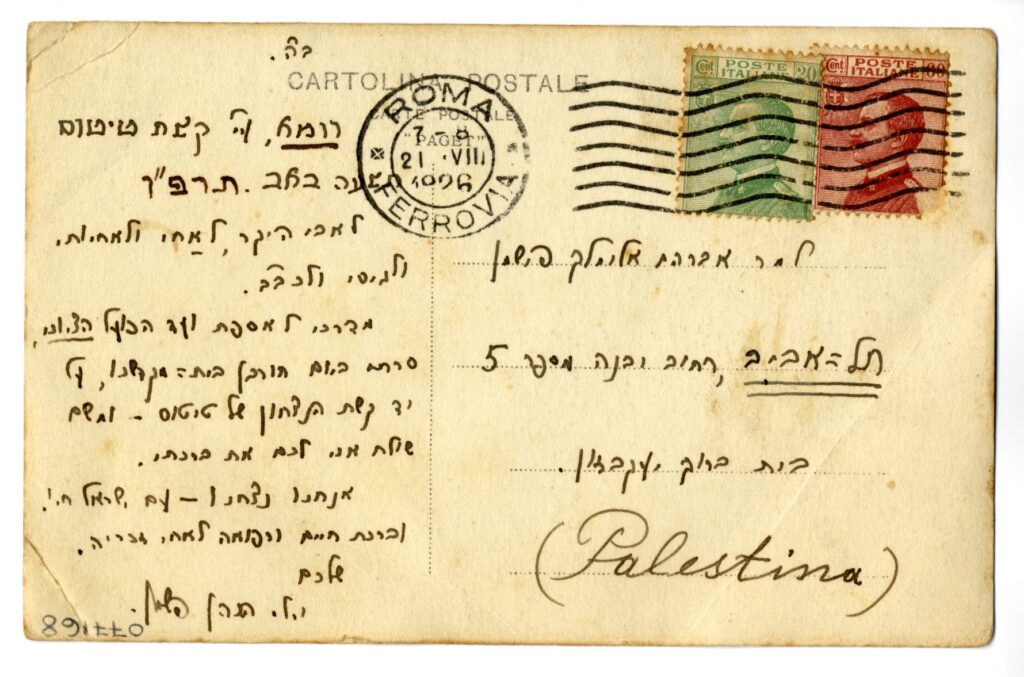 ב"ה.
CARTOLINA POSTALE
CARTE POSTALE
"PAGET"
ROMA
7-8
21 VIII
1926
FERROVIA
Cent POSTE ITALIANE 20
Cent POSTE ITALIANE 60
רומא, ע"י קשת טיטוס
תשעה באב. תרפ"ו
לאבי היקר, לאחי ולאחיותי,
ולגיסי ולכב"ב.
מדרכי לאספת ועד הפועל הציוני,
סרתי ביום חורבן בית=מקדשנו, על
יד קשת הנצחון של טיטוס – ומשם
שולח אני לכם את ברכתי.
אנחנו נצחנו – עם ישראל חי!
וברכת חיים ורפואה לאחי זכריה.
שלכם
י.ל. הכהן פישמן.
למר אברהם אלימלך פישמן
תל=אביב, רחוב יבנה מספר 5
בית ברוך יעקבזון.
(Palestina)